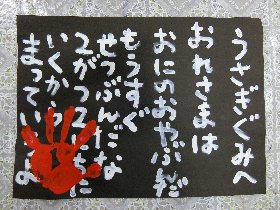 うさぎぐみへ
おれさまは
おにのおやぶんだ
もうすぐ
せつぶんだな
2がつ2にちに
いくから
まっていろよ